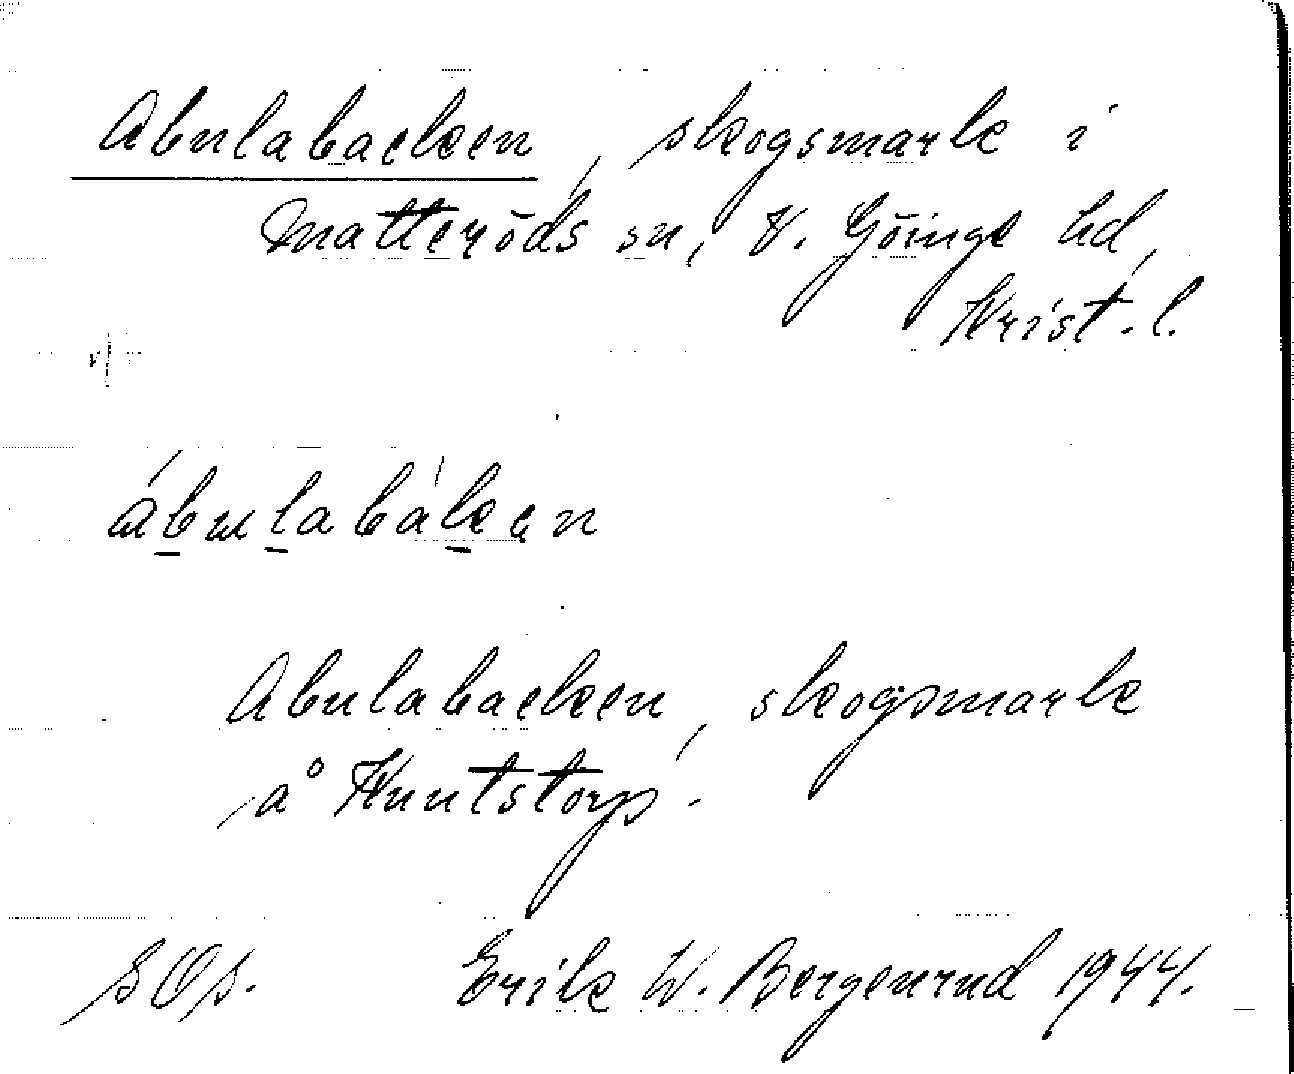 Abulabacken, skogsmark i
Matteröds sn, V. Göinge hd,
Krist. l.
ábulabàkęn
Abulabacken, skogsmark
å Kuntstorp.
SOS. Erik W. Bergenrud 1944.